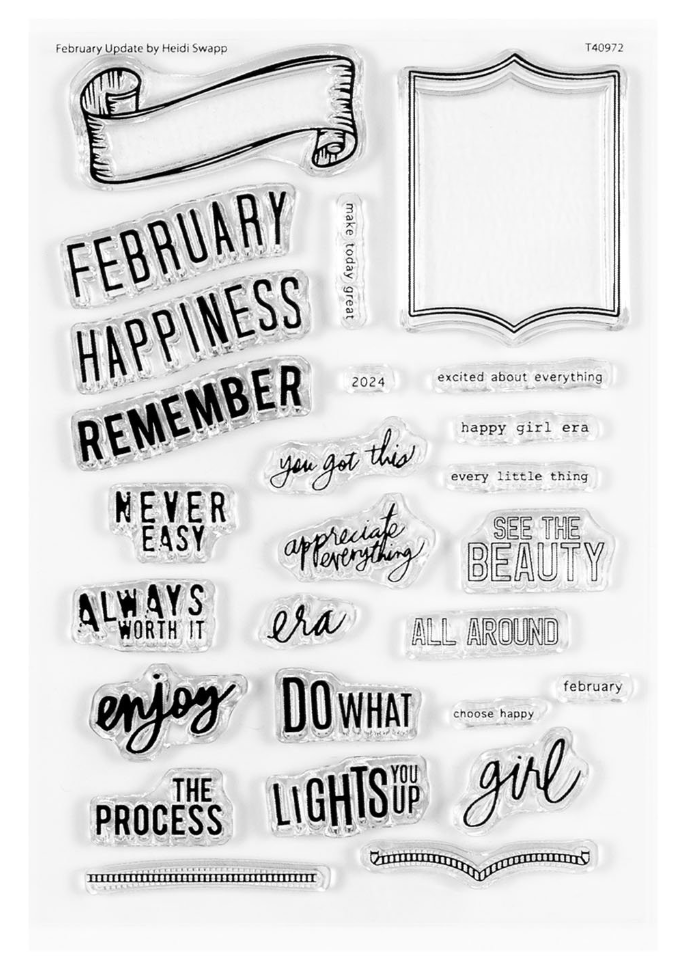 February Update by Heidi Swapp
T40972
FEBRUARY
make today great
HAPPINESS
REMEMBER
2024
excited about everything
happy girl era
you got this
every little thing
NEVER
EASY
appreciate
everything
SEE THE
BEAUTY
ALWAYS
WORTH IT
era
ALL AROUND
enjoy
DO WHAT
february
choose happy
THE
PROCESS
LIGHTS YOU
UP
girl